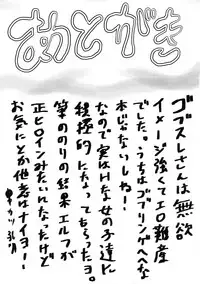 あとがき
ゴブスレさんは無欲
イメージ強くてエロ難産
でした。うちはゴブリングへへな
本じゃないしねー!
なので実はHな女の子達に
積極的になってもらったヨ。
筆ののりの結果エルフが
正ヒロインみたいんなったけど
お気にとか他意はナイヨー!